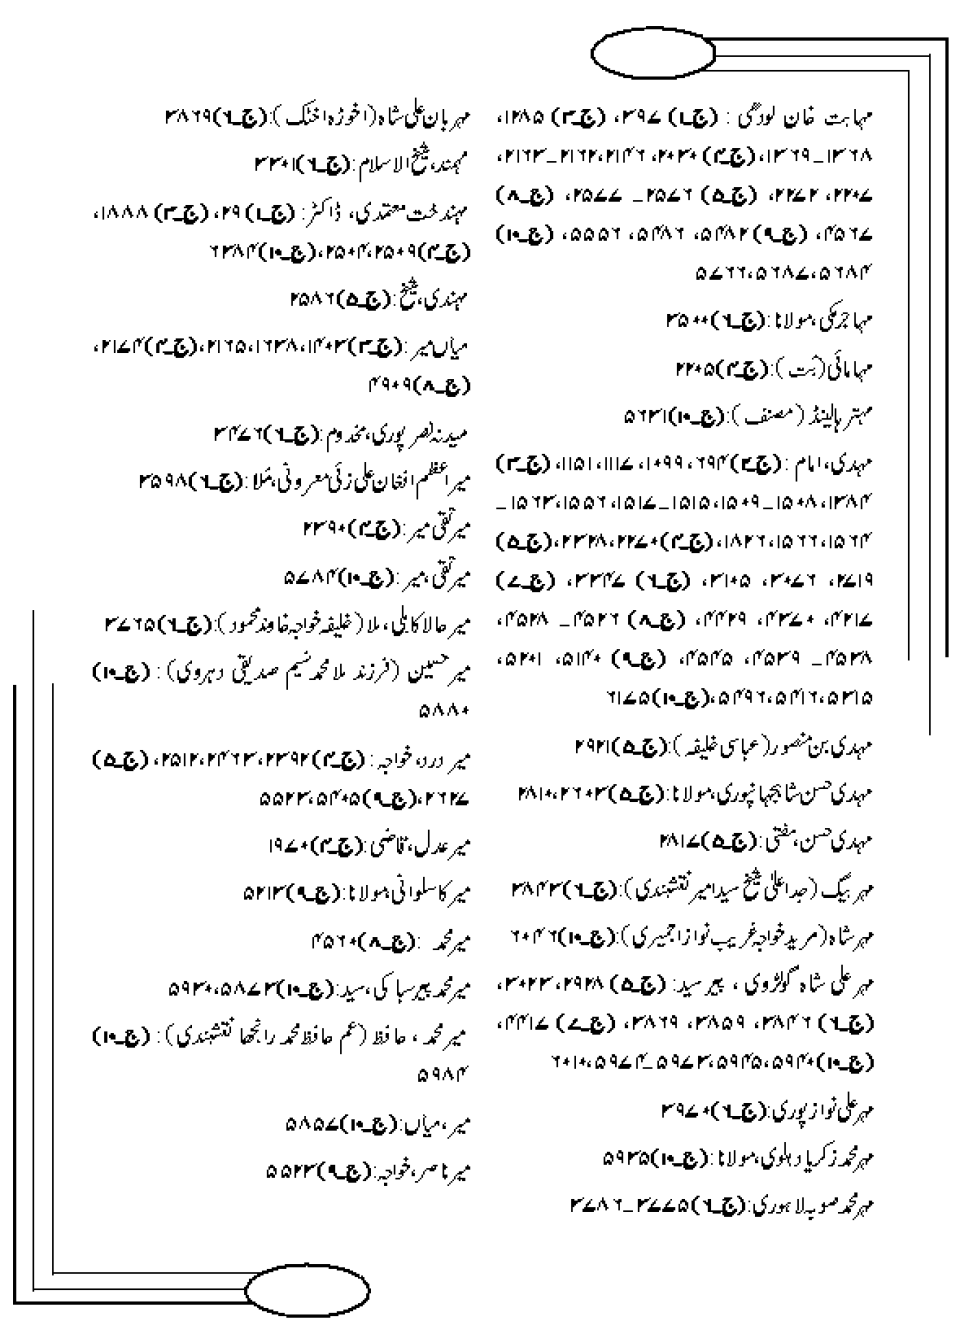 مہابت خان لودھی : (ج۔۱) ۳۹۷، (ج۔۳) ۱۲۸۵،
۱۳۶۸۔۱۳۶۹، (ج۔۴) ۲۰۳۰، ۲۱۴۶، ۲۱۶۲۔۲۱۶۳،
۲۲۰۷، ۲۲۷۲، (ج۔۵) ۲۵۷۶۔ ۲۵۷۷، (ج۔۸)
۴۵۶۷، (ج۔۹) ۵۴۸۲، ۵۴۸۶، ۵۵۵۶، (ج۔۱۰)
۵۶۸۴، ۵۶۸۷، ۵۷۶۶
مہاجر مکی، مولانا: (ج۔۶) ۳۵۰۰
مہامائی (بت): (ج۔۴) ۲۲۰۵
مہتر ہالینڈ (مصنف): (ج۔۱۰) ۵۶۳۱
مہدی، امام : (ج۔۲) ۶۹۴، ۱۰۹۹، ۱۱۱۷، ۱۱۵۱، (ج۔۳)
۱۳۸۴، ۱۵۰۸۔۱۵۰۹، ۱۵۱۵۔۱۵۱۷، ۱۵۵۶، ۱۵۶۳۔
۱۵۶۴، ۱۵۶۶، ۱۸۲۶، (ج۔۴) ۲۲۷۰، ۲۳۲۸، (ج۔۵)
۲۷۱۹، ۳۰۷۶، ۳۱۰۵، (ج۔۶) ۳۳۴۷، (ج۔۷)
۴۲۱۷، ۴۳۷۰، ۴۴۲۹، (ج۔۸) ۴۵۲۶۔ ۴۵۲۸،
۴۵۳۸۔ ۴۵۳۹، ۴۵۴۵، (ج۔۹) ۵۱۴۰، ۵۲۰۱،
۵۳۱۵، ۵۴۱۶، ۵۴۹۶، (ج۔۱۰) ۶۱۷۵
مہدی بن منصور (عباسی خلیفہ): (ج۔۵) ۲۹۲۱
مہدی حسن شاہجہانپوری، مولانا: (ج۔۵) ۲۶۰۳، ۲۸۱۰
مہدی حسن، مفتی: (ج۔۵) ۲۸۱۷
مہر بیگ (جد اعلیٰ شیخ سید امیر نقشبندی): (ج۔۶) ۳۸۴۳
مہر شاہ (مرید خواجہ غریب نواز اجمیری): (ج۔۱۰) ۶۰۴۶
مہر علی شاہ گولڑوی ، پیر سید: (ج۔۵) ۲۹۲۸، ۳۰۲۳،
(ج۔۶) ۳۸۴۶، ۳۸۵۹، ۳۸۶۹، (ج۔۷) ۴۴۱۷،
(ج۔۱۰) ۵۹۴۰، ۵۹۴۵، ۵۹۷۲۔۵۹۷۴، ۶۰۱۰
مہر علی نواز پوری: (ج۔۶) ۳۹۷۰
مہر محمد زکریا دہلوی، مولانا: (ج۔۱۰) ۵۹۳۵
مہر محمد صوبہ لاہوری: (ج۔۶) ۳۷۷۵۔۳۷۸۶
مہربان علی شاہ (اخوڑہ اخٹک): (ج۔۶) ۳۸۶۹
مہمند، شیخ الاسلام: (ج۔۶) ۳۳۰۱
مہندخت معتمدی، ڈاکٹر: (ج۔۱) ۲۹، (ج۔۳) ۱۸۸۸،
(ج۔۴) ۲۵۰۹، ۲۵۰۴، (ج۔۱۰) ۶۲۸۴
مہندی، شیخ: (ج۔۵) ۲۵۸۶
میاں میر: (ج۔۳) ۱۴۰۳، ۱۶۳۸، ۲۱۶۵، (ج۔۴) ۲۱۷۴،
(ج۔۸) ۴۹۰۹
میدنہ نصر پوری، مخدوم: (ج۔۶) ۳۴۷۶
میر اعظم افغان علی زئی معروفی، ملا: (ج۔۶) ۳۵۹۸
میر تقی میر: (ج۔۴) ۲۳۹۰
میر تقی، میر: (ج۔۱۰) ۵۷۸۴
میر حالا کابلی، ملا (خلیفہ خواجہ خاوند محمود): (ج۔۶) ۳۷۶۵
میر حسین (فرزند ملا محمد نسیم صدیقی دہروی) : (ج۔۱۰)
۵۸۸۰
میر درد، خواجہ: (ج۔۴) ۲۳۹۲، ۲۴۶۳، ۲۵۱۲، (ج۔۵)
۲۶۲۷، (ج۔۹) ۵۴۰۵، ۵۵۲۳
میر عدل، قاضی: (ج۔۴) ۱۹۷۰
میر کاسلوانی، مولانا: (ج۔۹) ۵۲۱۳
میر محمد : (ج۔۸) ۴۵۶۰
میر محمد پیر سباکی، سید: (ج۔۱۰) ۵۸۷۲، ۵۹۳۰
میر محمد ، حافظ (عم حافظ محمد رانجھا نقشبندی) : (ج۔۱۰)
۵۹۸۴
میر، میاں: (ج۔۱۰) ۵۸۵۷
میر ناصر، خواجہ: (ج۔۹) ۵۵۲۳